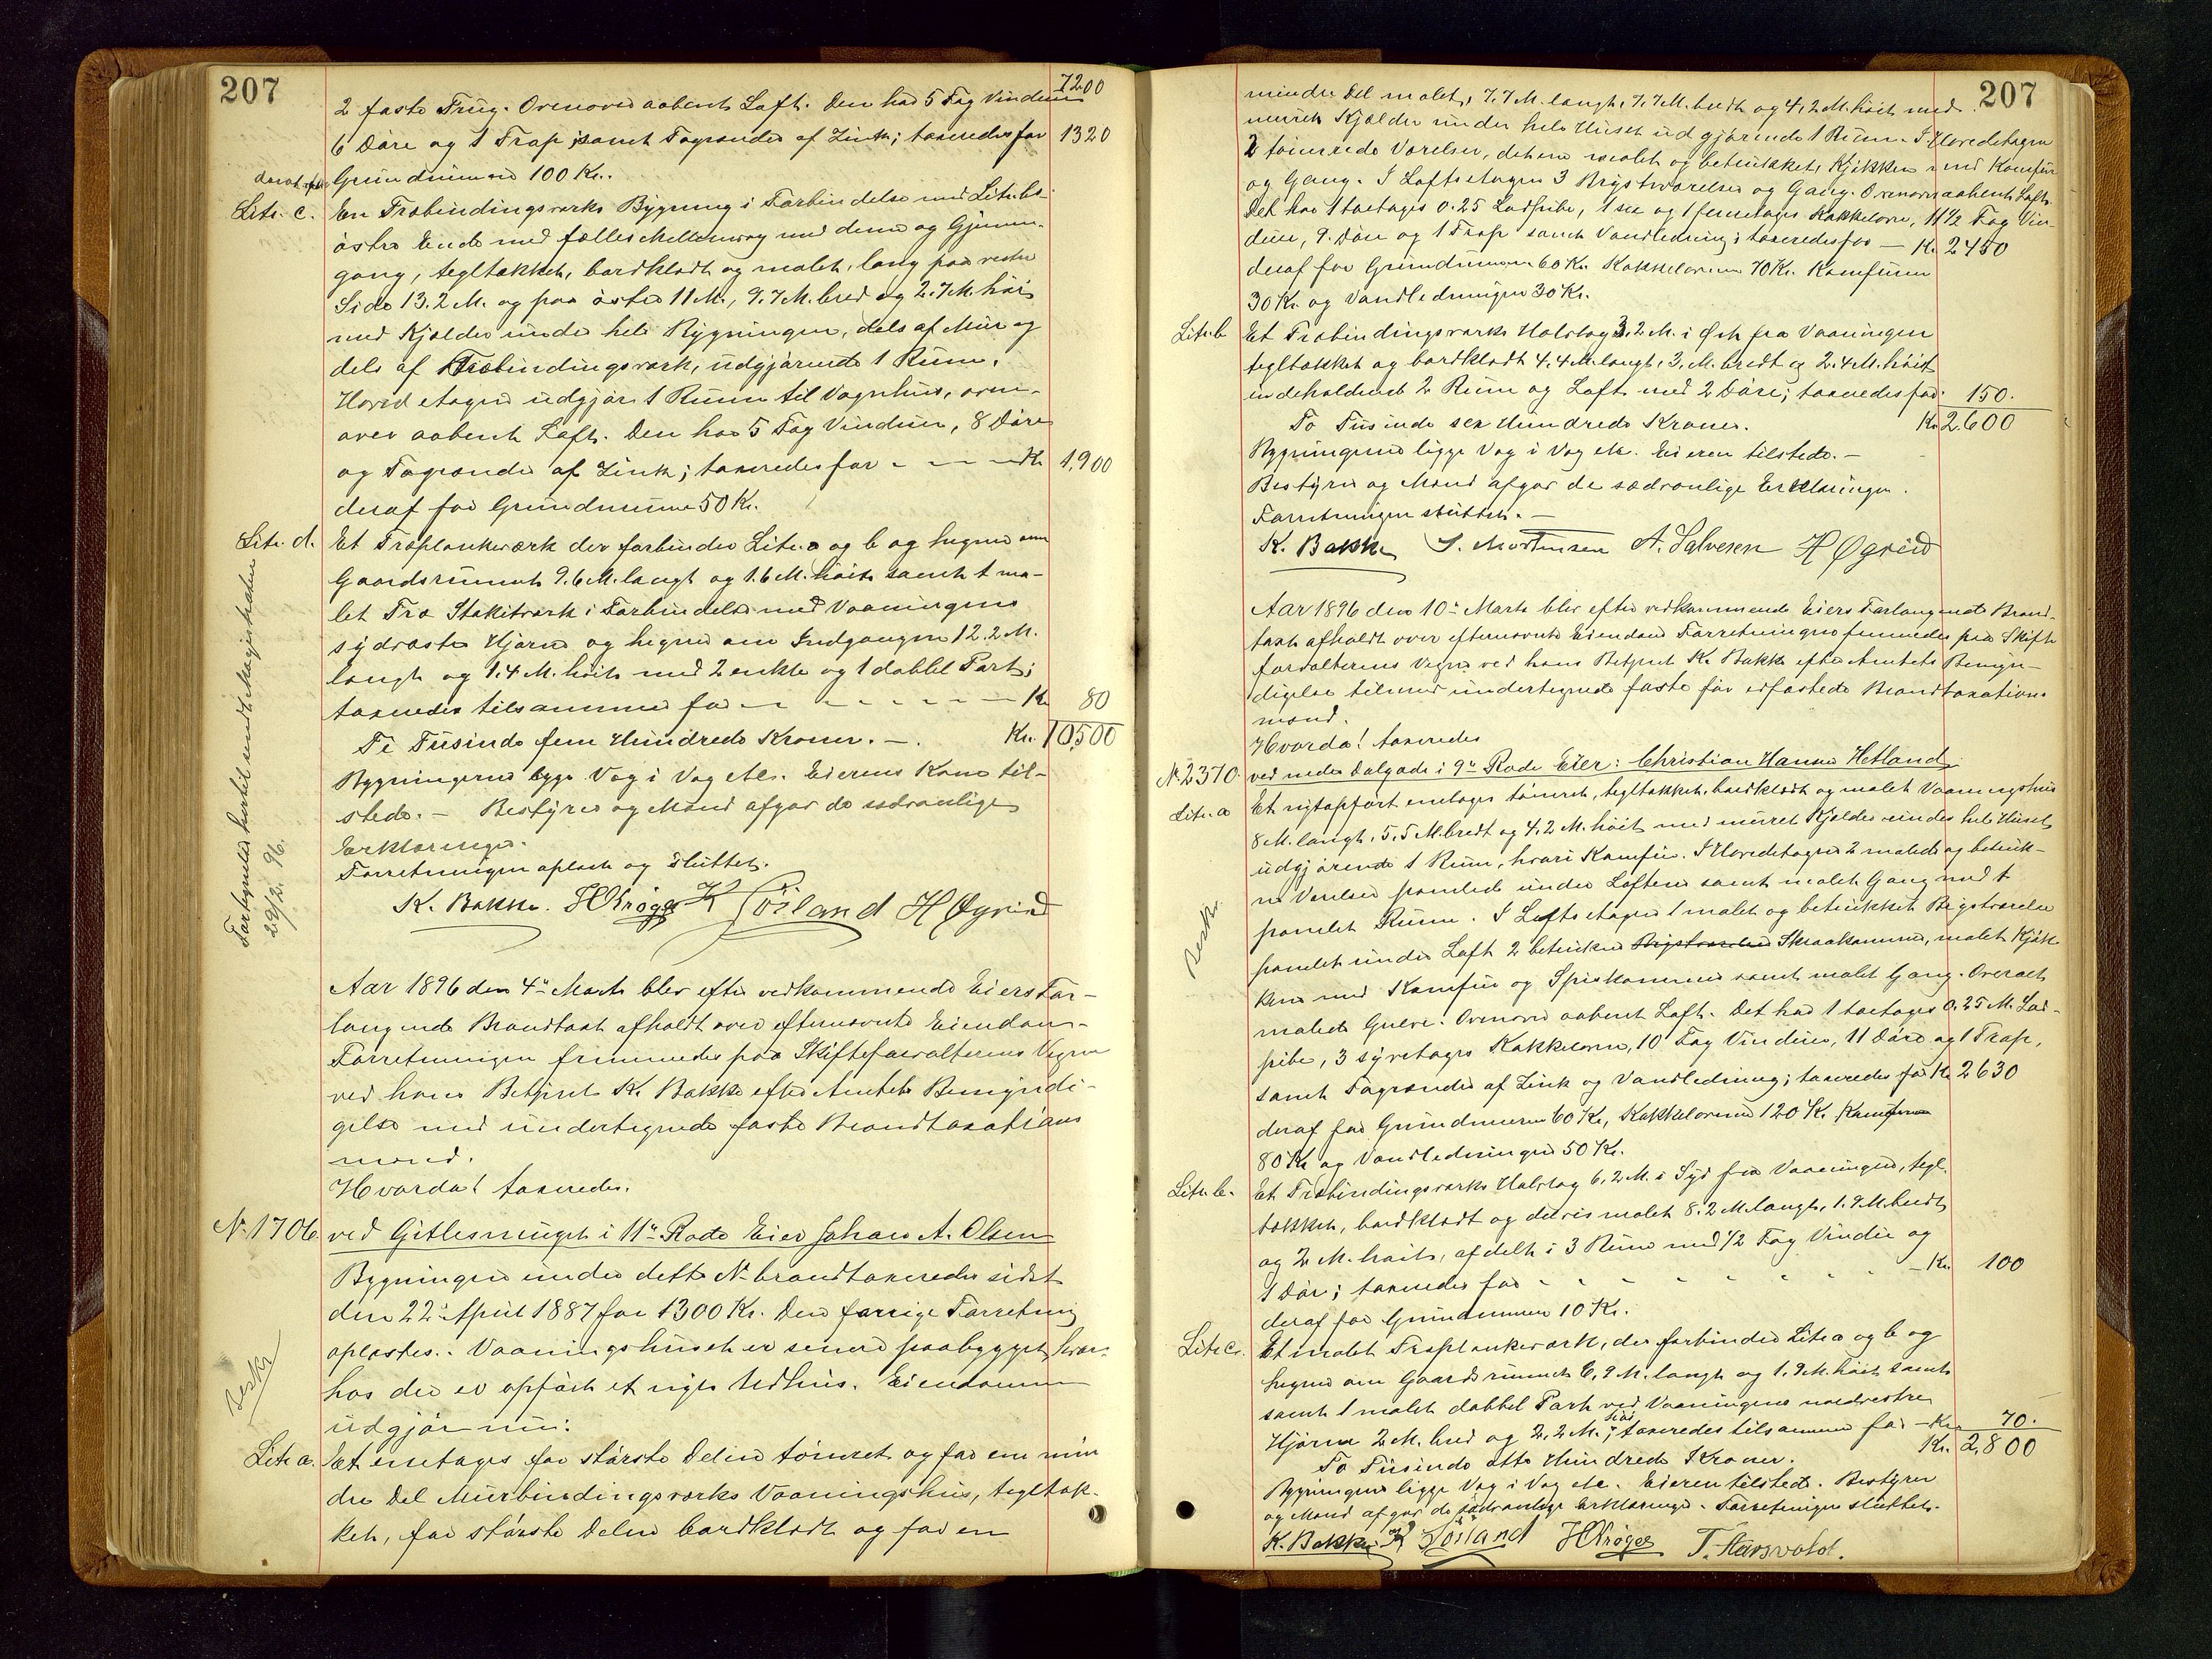 207
7200
2 faste Trug. Ovenover aabent Loft. Den har 5 Fag Vinduer
6 Døre og 1 Trap samt Tagrender af Zink; taxeredes for 1320
deraf for Grundmuren 100 Kr.
Litr. c. En Træbindingsværks Bygning i Forbindelse med Litr. b's
østre Ende med fælles Mellemvæg med denne og Gjennem-
gang, tegltækket, bordklædt og malet, lang paa vestre
Side 13.2 M. og paa østre 11 M., 9.7 M. bred og 2.7 M. høi
med Kjælder under hele Bygningen, dels af Mur og
dels af Træbindingsværk, udgjørende 1 Rum.
Hovedetagen udgjør 1 Rum til Vognhus, oven-
over aabent Loft. Den har 5 Fag Vinduer, 8 Døre
og Tagrender af Zink; taxeredes for - - - Kr. 1,900
deraf for Grundmuren 50 Kr.
Litr. d. Et Træplankeværk der forbinder Litr. a og b og hegner om
Gaardsrummet 9.6 M. langt og 1.6 M. høit samt 1 ma-
let Træ Stakitværk i Forbindelse med Vaaningens
sydøstre Hjørne og hegner om Indgangen 12.2 M.
langt og 1.4 M. høit med 2 enkle og 1 dobbel Port;
taxeredes tilsammen for - - - - - - Kr. 80
Ti Tusinde fem Hundrede Kroner. - Kr. 10,500
Bygningerne ligge Væg i Væg etc. Eierens Kone til-
stede. - Bestyrer og Mænd afgav de sædvanlige
Erklæringer.
Forretningen oplæst og sluttet.
K. Bakke. H Krøger K Sörland H Øgreid
Fortegnelse hertil sendt Magistraten
29/12. 96.
Aar 1896 den 4de Marts blev efter vedkommende Eiers For-
langende Brandtaxt afholdt over efternævnte Eiendom.
Forretningen fremmedes paa Skifteforvalterens Vegne
ved hans Betjent K. Bakke efter Amtets Bemyndi-
gelse med undertegnede faste Brandtaxations
mænd.
Hvorda! taxeredes.
No. 1706. ved Gitlesmuget i 11te Rode Eier Johan A. Olsen
Bygningen under dette No. brandtaxeredes sidst
den 22de April 1887 for 1300 Kr. Den forrige Forretning
oplæstes. Vaaningshuset er senere paabygget, hvor-
hos der er opført et nyt Udhus. Eiendommen
udgjør nu:
Litr a. Et enetages for største Delen tømret og for en min
dre Del Murbindingsværks Vaaningshus, tegltæk-
ket, for største Delen bordklædt og for en
207
mindre Del malet, 7.7 M. langt, 7.7 M. bredt og 4.2 M. høit med
muret Kjælder under hele Huset udgjørende 1 Rum. I Hovedetagen
2 tømrede Værelser, det ene malet og betrukket, Kjøkken med Komfur
og Gang. I Loftsetagen 3 Brystværelser og Gang. Ovenover aabent Loft.
Det har 1 toetages 0.25 Lodpibe, 1 sex og 1 femetages Kakkelovn, 11½ Fag Vin-
duer, 9. Døre og 1 Trap samt Vandledning; taxeredes for - Kr. 2450
deraf for Grundmuren 60 Kr. Kakkelovnene 70 Kr. Komfuren
30 Kr. og Vandledningen 30 Kr.
Litr. b Et Træbindingsværks Halvtag 3.2 M. i Øst fra Vaaningen
tegltækket og bordklædt 4.4 M. langt, 3. M. bredt og 2.4 M. høit
indeholdende 2 Rum og Loft med 2 Døre; taxeredes for 150.
To Tusinde sex Hundrede Kroner. Kr. 2600
Bygningerne ligge Væg i Væg etc. Eieren tilstede. -
Bestyrer og Mænd afgav de sædvanlige Erklæringer.
Forretningen sluttet. -
K. Bakke S. Mortensen A. Salvesen H Øgreid
Aar 1896 den 10de Marts blev efter vedkommende Eiers Forlangende Brand-
taxt afholdt over efternævnte Eiendom Forretningen fremmedes paa Skifte
forvalterens Vegne ved hans Betjent K. Bakke efter Amtets Bemyn-
digelse tilmed undertegnede faste før edfæstede Brandtaxations
mænd.
Hvorda! taxeredes
No. 2370. ved nedre Dalgade i 9de Rode Eier: Christian Hansen Hetland
Litr. a Et nyopført enetages tømret, tegltækket, bordklædt og malet Vaaningshus
8 M. langt, 5.5 M. bredt og 4.2 M. høit med muret Kjælder under hele Huset
udgjørende 1 Rum, hvori Komfur. I Hovedetagen 2 malede og betruk-
ne Værelser panelede under Loftene samt malet Gang med 1
panelet Rum. I Loftsetagen 1 malet og betrukket Brystværelse
panelet under Loft 2 betrukne Brystværelser Skraakamre, malet Kjøk-
ken med Komfur og Spiskammer samt malet Gang. Overalt
malede Gulve. Ovenover aabent Loft. Det har 1 toetages 0.25 M. Lod-
pibe, 3 syvetages Kakkelovne, 10 Fag Vinduer, 11 Døre og 1 Trap,
samt Tagrender af Zink og Vandledning; taxeredes for Kr. 2630
deraf for Grundmuren 60 Kr., Kakkelovnene 120 Kr. Komfurene
80 Kr. og Vandledningen 50 Kr.
Litr. b. Et Træbindingsværks Halvtag 6.2 M. i Syd fra Vaaningen, tegl-
tækket, bordklædt og delvis malet 8.2 M. langt, 1.9 M. bredt
og 2 M. høit, afdelt i 3 Rum med ½ Fag Vindue og
1 Dør; taxeredes for - - - - - Kr. 100
deraf for Grundmuren 10 Kr.
Litr c. Et malet Træplankeværk, der forbinder Litr a og b og
hegner om Gaardsrummet 6.9 M. langt og 1.9 M. høit samt
samt 1 malet dobbel Port ved Vaaningens nordvestre
Hjørne 2 M. bred og 2.2 M. høi; taxeredes tilsammen for - Kr. 70.
To Tusinde otte Hundrede Kroner. Kr. 2,800
Bygningerne ligge Væg i Væg etc. Eieren tilstede. Bestyrer
og Mænd afgav de sædvanlige Erklæringer. Forretningen sluttet.
K. Bakke K Sörland H Krøger T. Aarsvold.